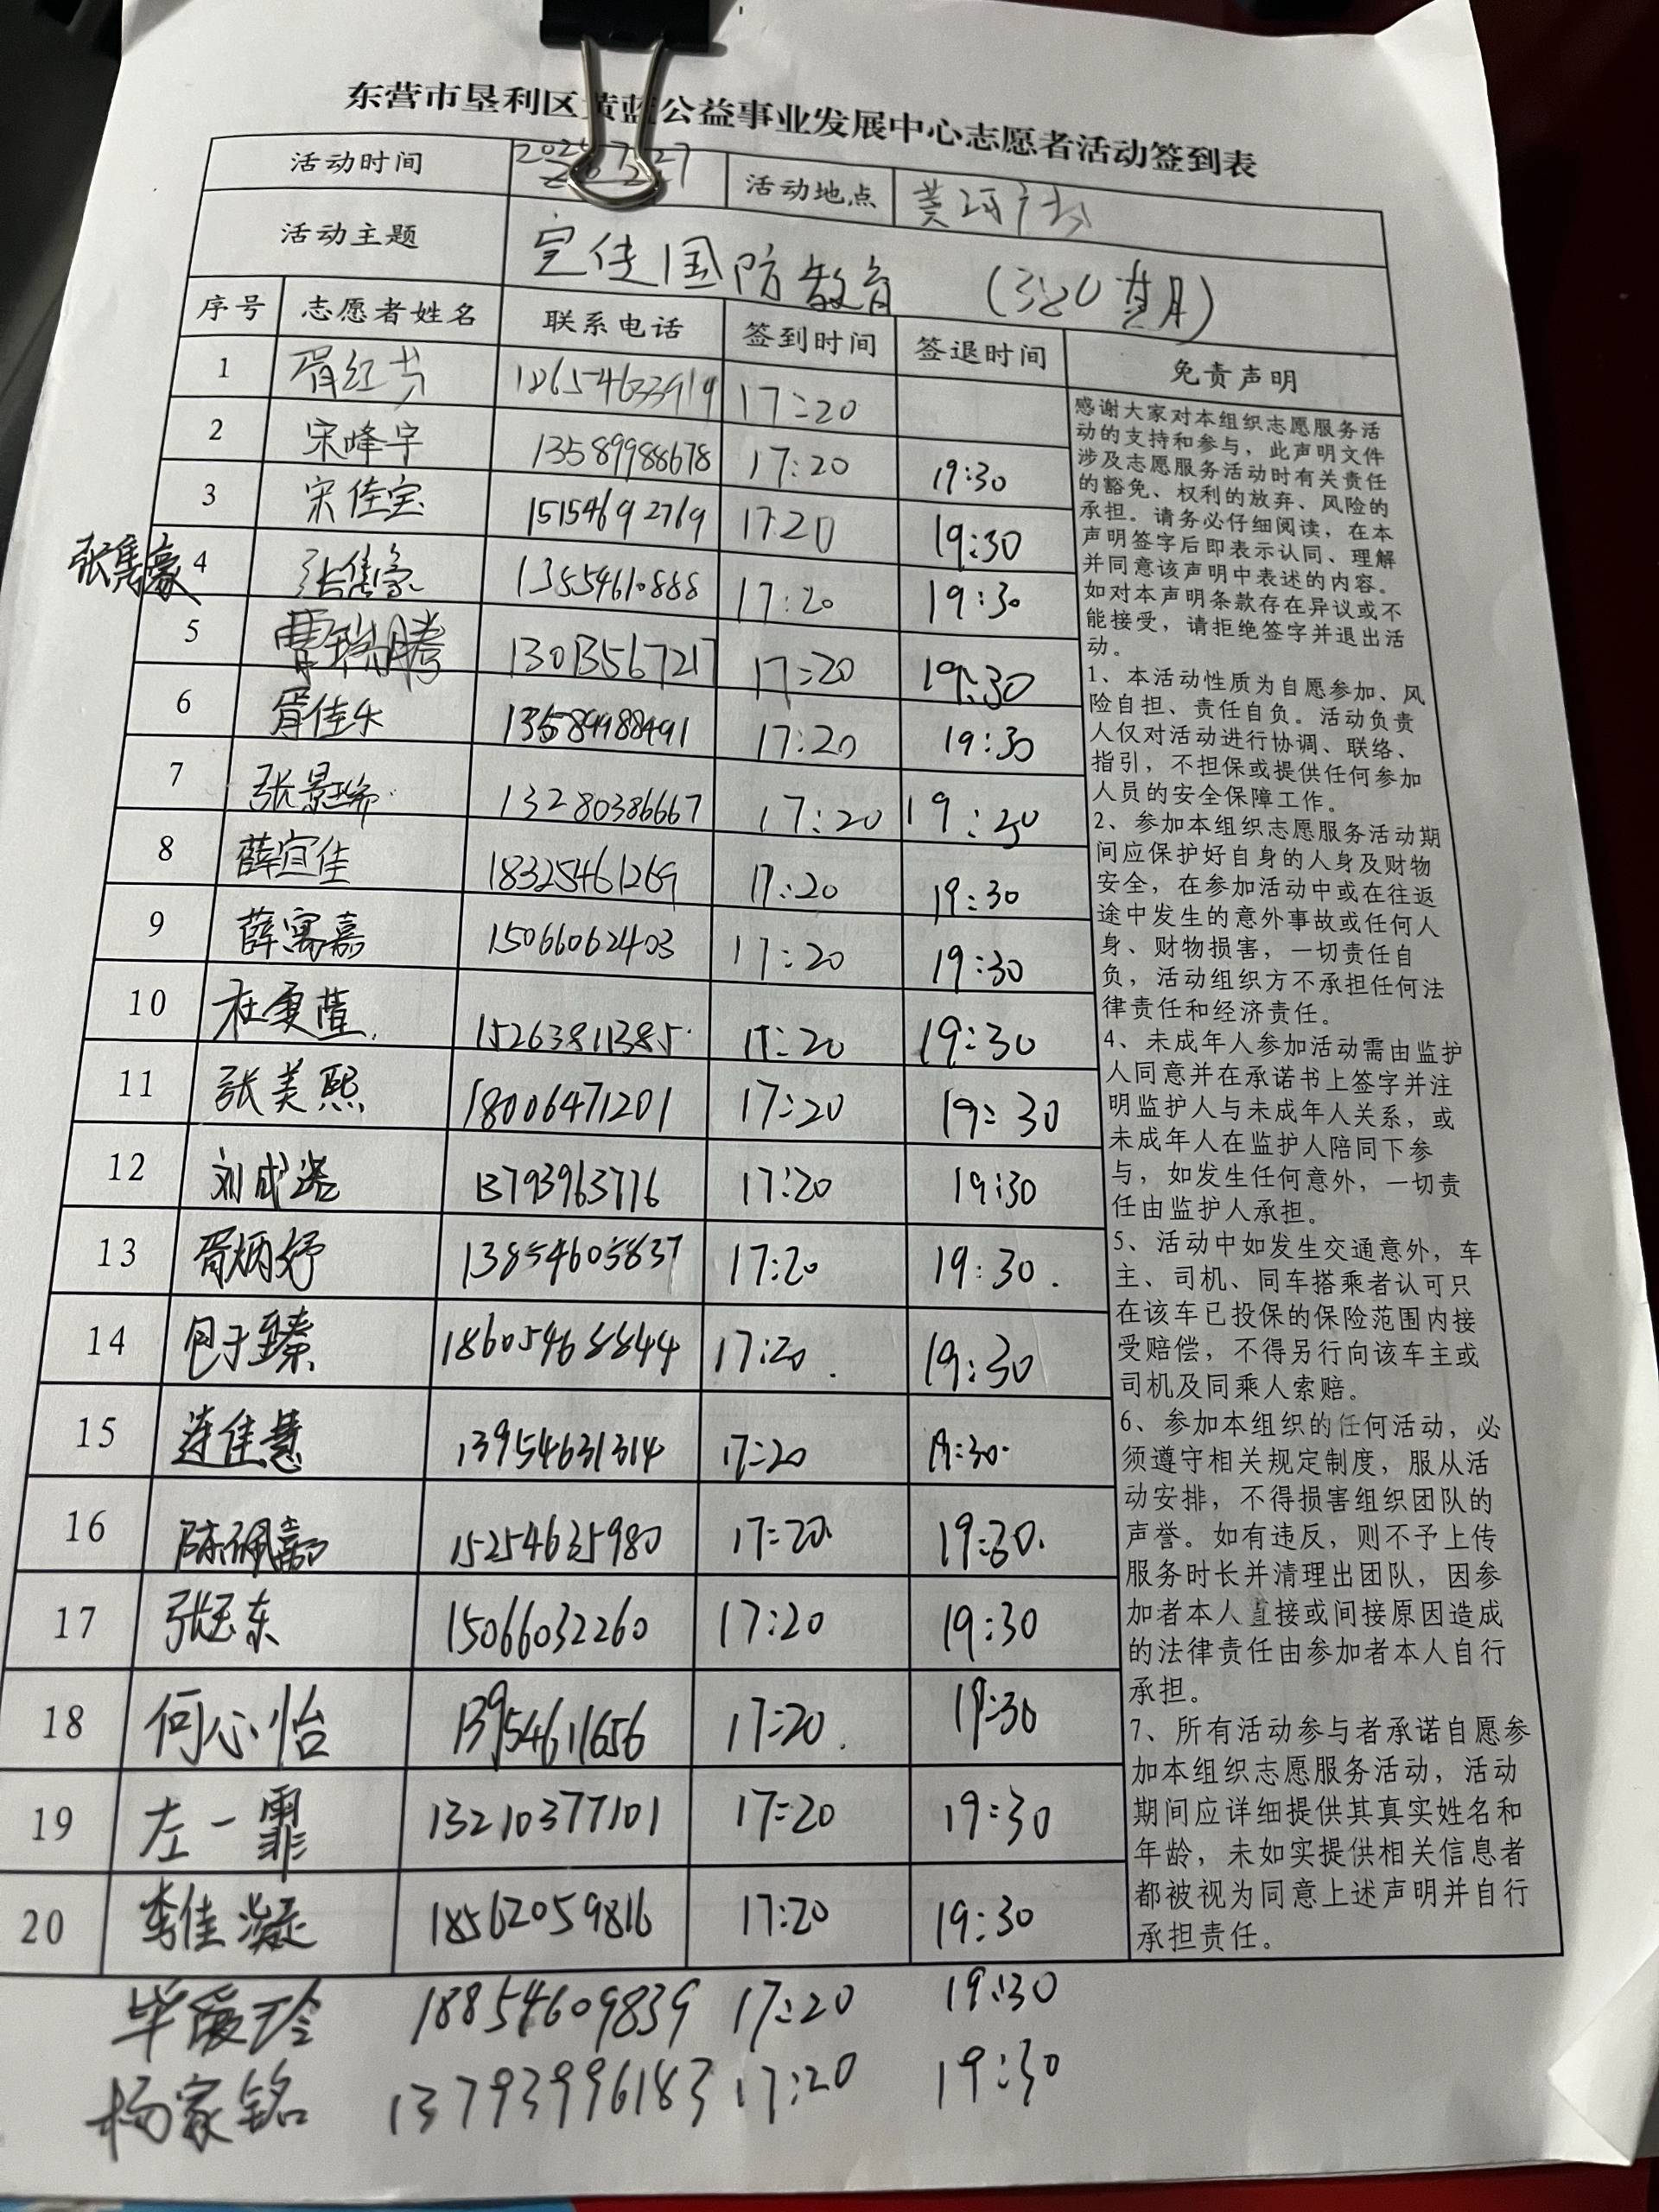 东营市垦利区黄蓝公益事业发展中心志愿者活动签到表
活动时间 活动地点 黄河广场
活动主题 宣传国防教育 (320期)
序号 志愿者姓名 联系电话 签到时间 签退时间 免责声明
1 胥红芳 17:20
2 宋峰宇 13589988678 17:20 19:30
3 宋佳宝 15154692769 17:20 19:30
张隽豪 4 张隽豪 17:20 19:30
5 曹瑞腾 13013567217 17:20 19:30
6 胥佳乐 13589988491 17:20 19:30
7 张景瑞 13280386667 17:20 19:30
8 薛宜佳 18325461269 17:20 19:30
9 薛寓嘉 15066062403 17:20 19:30
10 15263811385 17:20 19:30
11 张美熙 18006471201 17:20 19:30
12 刘成 13793963776 17:20 19:30
13 胥炳妤 13854605837 17:20 19:30
14 18605468844 17:20 19:30
15 连佳慧 13954631314 17:20 19:30
16 陈佩嘉 15254635980 17:20 19:30
17 张玉东 15066032260 17:20 19:30
18 何心怡 13954611656 17:20 19:30
19 左一霏 13210377101 17:20 19:30
20 李佳凝 18562059816 17:20 19:30
毕爱玲 18854609839 17:20 19:30
杨家铭 13793996183 17:20 19:30
感谢大家对本组织志愿服务活
动的支持和参与，此声明文件
涉及志愿服务活动时有关责任
的豁免、权利的放弃、风险的
承担。请务必仔细阅读，在本
声明签字后即表示认同、理解
并同意该声明中表述的内容。
如对本声明条款存在异议或不
能接受，请拒绝签字并退出活
动。
1、本活动性质为自愿参加、风
险自担、责任自负。活动负责
人仅对活动进行协调、联络、
指引，不担保或提供任何参加
人员的安全保障工作。
2、参加本组织志愿服务活动期
间应保护好自身的人身及财物
安全，在参加活动中或在往返
途中发生的意外事故或任何人
身、财物损害，一切责任自
负，活动组织方不承担任何法
律责任和经济责任。
4、未成年人参加活动需由监护
人同意并在承诺书上签字并注
明监护人与未成年人关系，或
未成年人在监护人陪同下参
与，如发生任何意外，一切责
任由监护人承担。
5、活动中如发生交通意外，车
主、司机、同车搭乘者认可只
在该车已投保的保险范围内接
受赔偿，不得另行向该车主或
司机及同乘人索赔。
6、参加本组织的任何活动，必
须遵守相关规定制度，服从活
动安排，不得损害组织团队的
声誉。如有违反，则不予上传
服务时长并清理出团队，因参
加者本人直接或间接原因造成
的法律责任由参加者本人自行
承担。
7、所有活动参与者承诺自愿参
加本组织志愿服务活动，活动
期间应详细提供其真实姓名和
年龄，未如实提供相关信息者
都被视为同意上述声明并自行
承担责任。